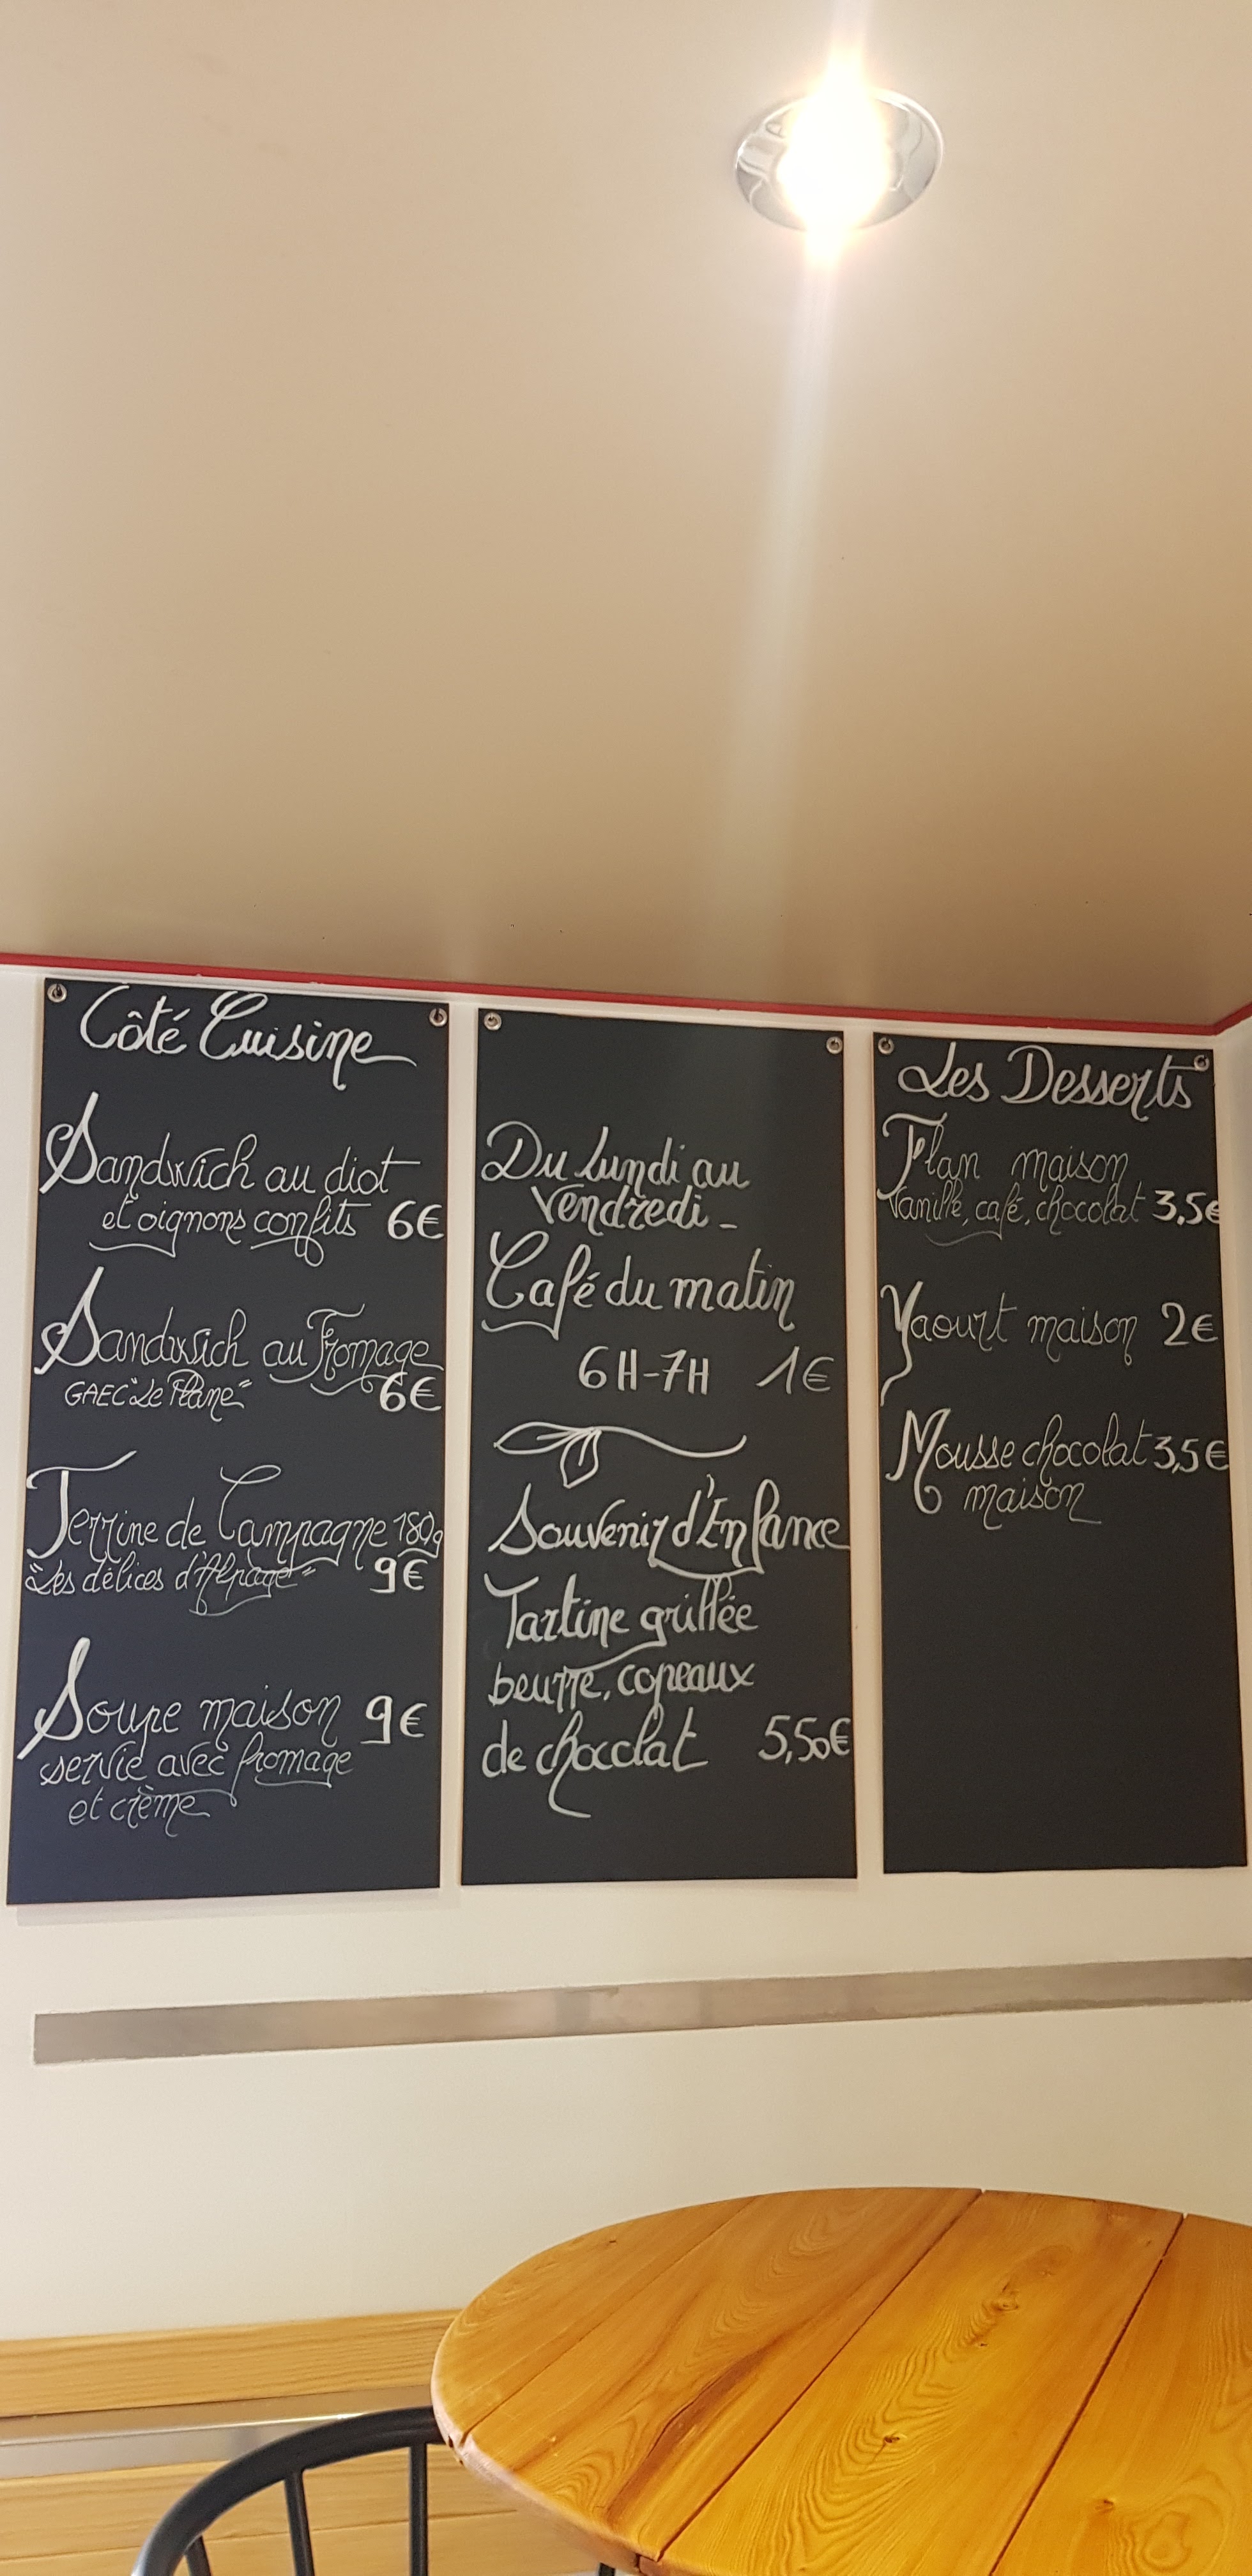 Côté Cuisine
Sandwich au diot
et oignons confits 6€
Sandwich au Fromage
GAEC "Le Plane" 6€
Terrine de Campagne 180g
"Les délices d'Alpage" 9€
Soupe maison 9€
servie avec fromage
et crème
Du Lundi au
Vendredi -
Café du matin
6H-7H 1€
Souvenir d'Enfance
Tartine grillée
beurre, copeaux
de chocolat 5,50€
Les Desserts
Flan maison
vanille, café, chocolat 3,5€
Yaourt maison 2€
Mousse chocolat 3,5€
maison